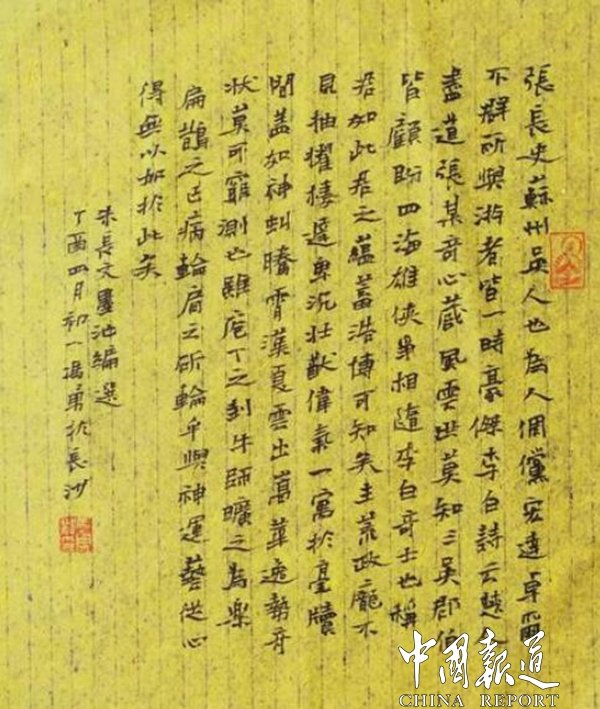 張長史蘇州吳人也為人倜儻宏達卓爾
不群所與游者皆一時豪傑李白詩云楚人
盡道張某奇心藏風雲世莫知三吳郡伯
皆顧盼四海雄俠爭相隨李白奇士也稱
君如此君之蘊蓄浩博可知矣主荒政龐不
見抽擢棲遲卑冗壯猷偉氣一寓於毫牘
間蓋如神虯騰霄漢夏雲出嵩華逸勢奇
狀莫可窮測也雖庖丁之刲牛師曠之為樂
扁鵲之已病輪扁之斫輪手與神運藝從心
得無以加於此矣
朱長文墨池編選
丁酉四月初一馮勇於長沙
中國報道
CHINA REPORT